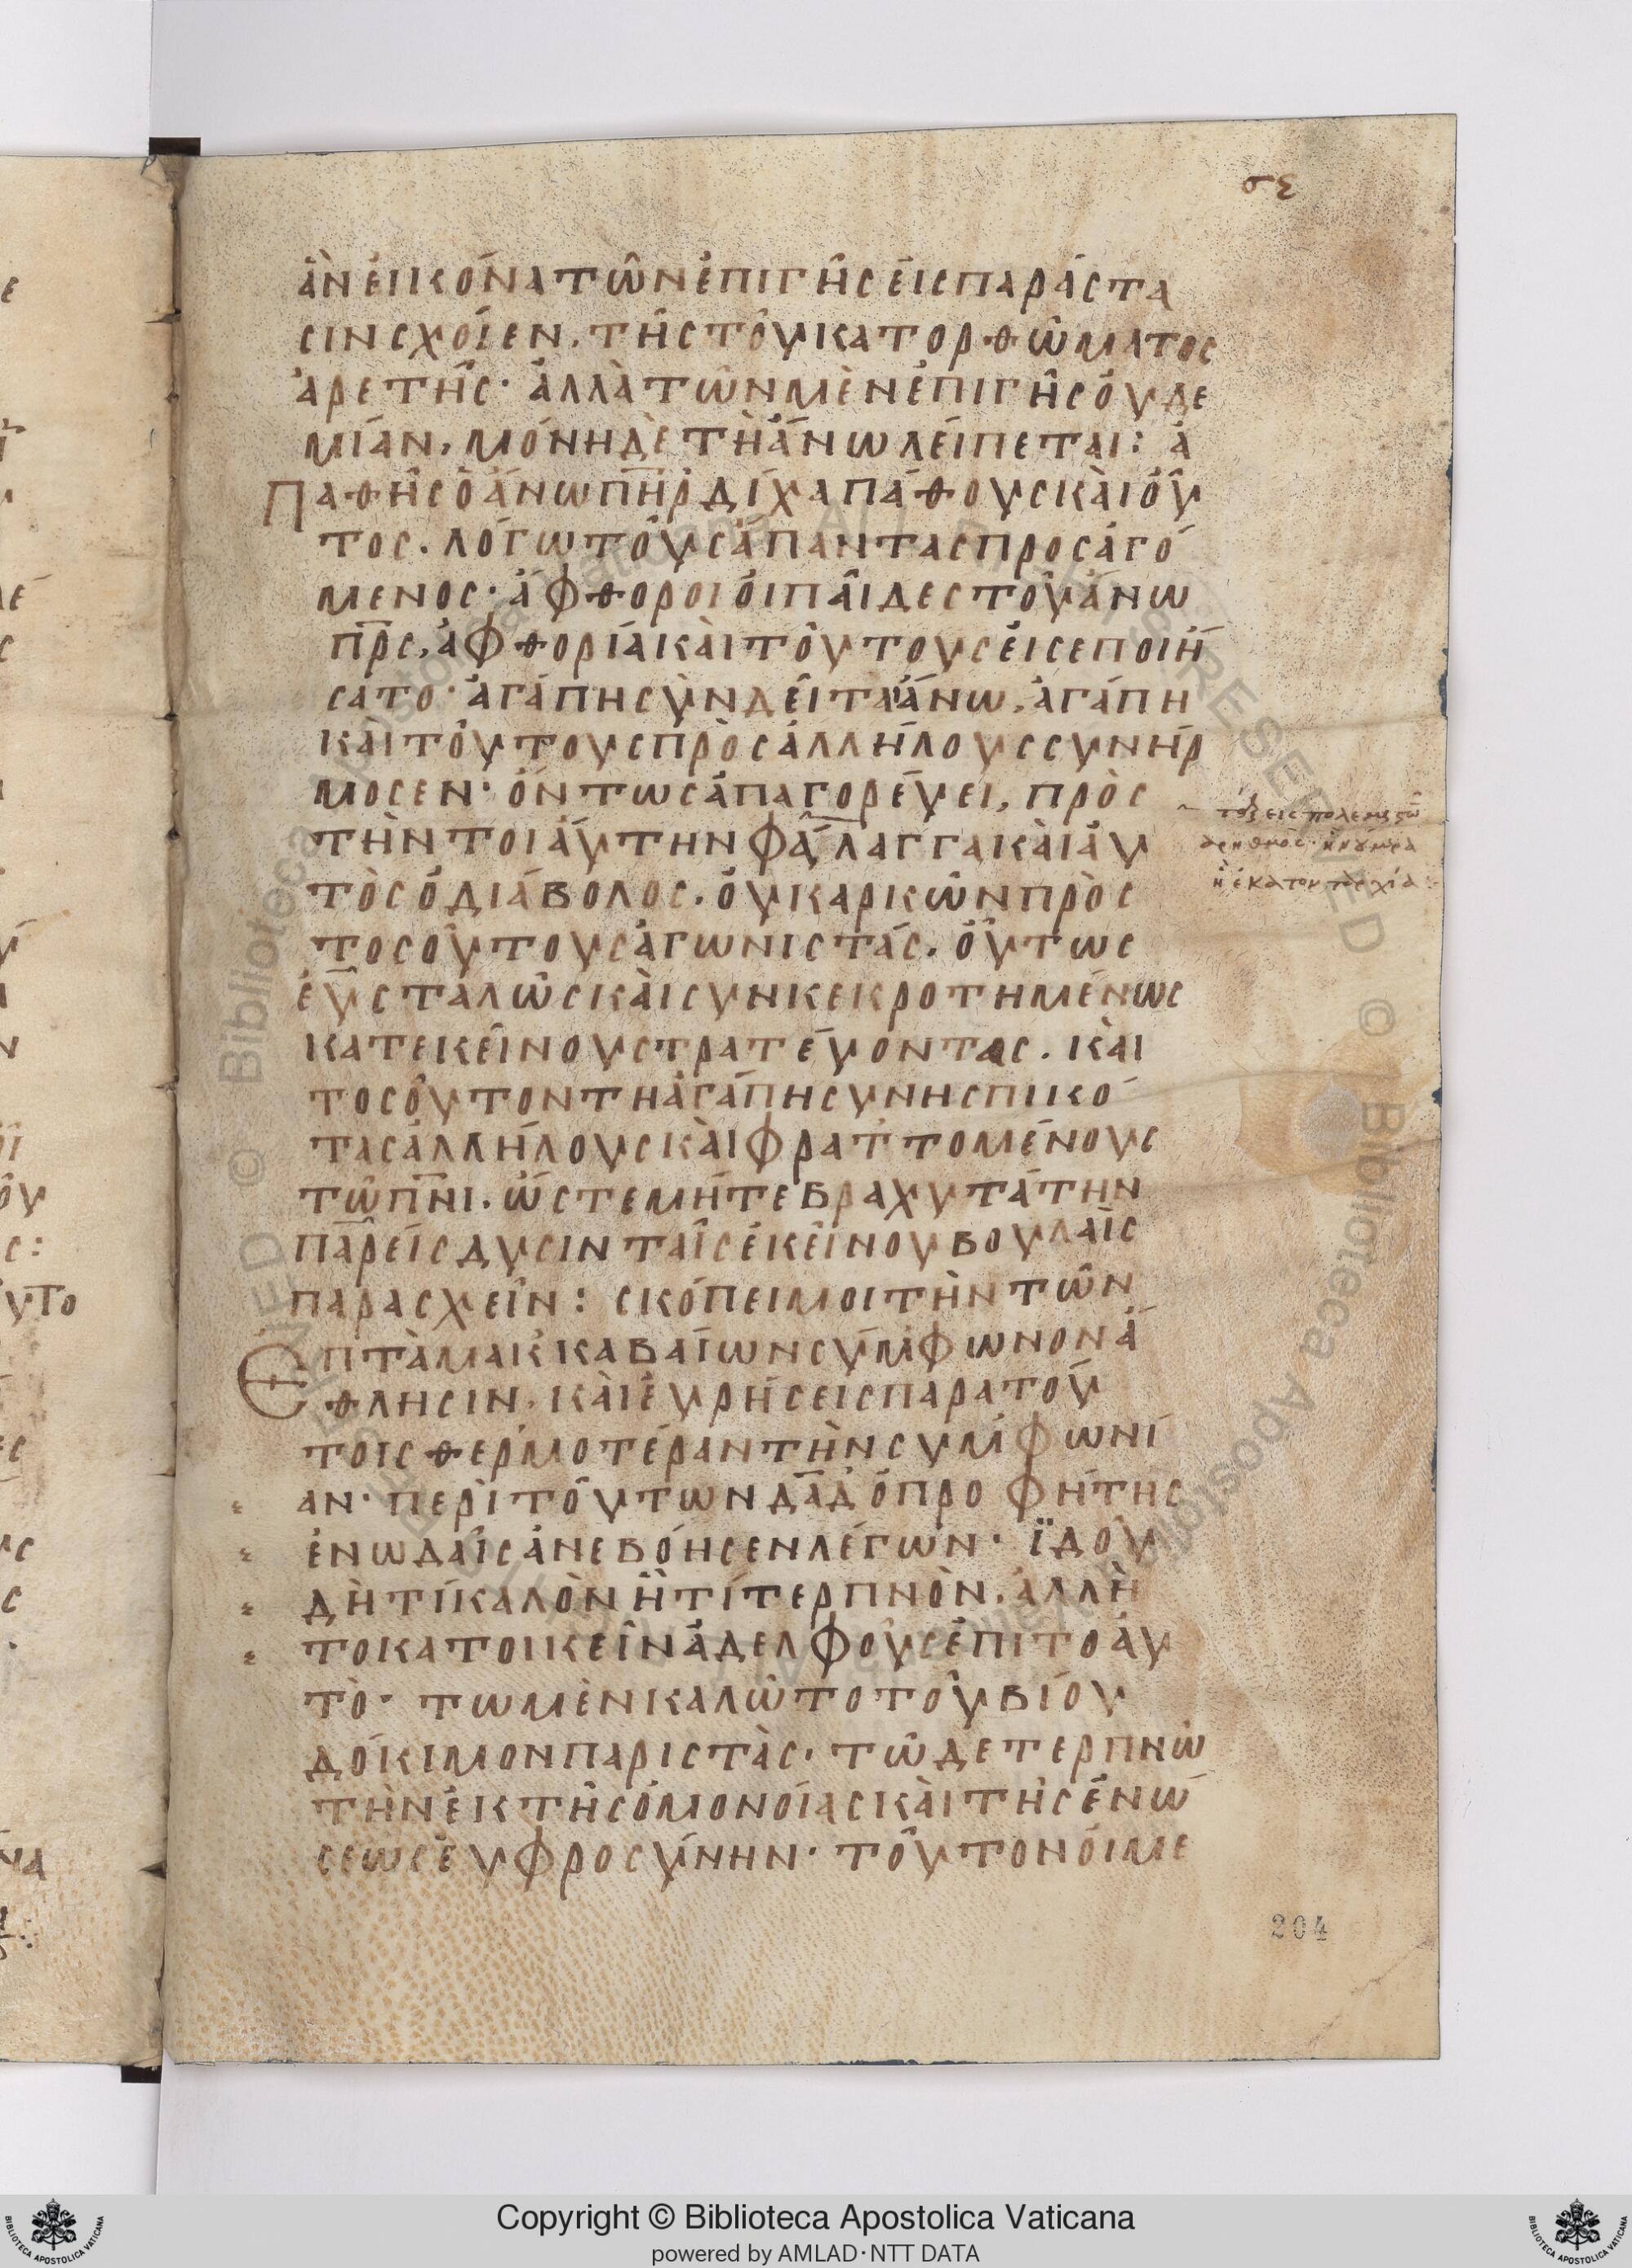 σε
ἂν εἰκόνα τῶν ἐπὶ γῆς εἰς παράστα
σιν σχοῖεν, τῆς τοῦ κατορθώματος
ἀρετῆς· ἀλλὰ τῶν μὲν ἐπὶ γῆς οὐδε
μίαν, μόνη δὲ τῆ ἄνω λείπεται: ἀ
Παθὴς ὁ ἄνω πηρ δίχα πάθους καὶ οὗ
τος. λόγω τοὺς ἅπαντας προσαγό
μενος· ἄφθοροι οἱ παῖδες τοῦ ἄνω
πρς, ἀφθορία καὶ τούτους εἰσεποιή
σατο· ἀγάπη συνδεῖ τὰ ἄνω, ἀγάπη
καὶ τούτους πρὸς ἀλλήλους συνήρ
μοσεν· ὄντως ἀπαγορεύει, πρὸς
τὴν τοιαύτην φάλαγγα καὶ αὐ
τὸς ὁ διάβολος. οὐκ αρκῶν πρὸς
τοσούτους ἀγωνιστάς. οὕτως
εὐσταλῶς καὶ συνκεκροτημένως
κατ εκείνου στρατεύοντας. καὶ
τοσοῦτον τη ἀγάπη συνησπικό
τας ἀλλήλους καὶ φραττομένους
τῶ πνι. ὥστε μήτε βραχυτάτην
παρείσδυσιν ταῖς ἐκείνου βουλαῖς
παρασχεῖν: σκόπει μοι τὴν τῶν
Επτὰ μακκαβαίων σύμφωνον ἄ
θλησιν. καὶ εὑρήσεις παρα τού
τοις θερμοτέραν τὴν συμφωνί
αν· περὶ τούτων δαδ ὁ προφήτης
ἐν ωδαῖς ἀνεβόησεν λέγων· ϊδοὺ
δὴ τί καλὸν ἢ τί τερπνὸν. ἀλλ ἢ
το κατοικεῖν ἀδελφοὺς ἐπι το αὐ
τὸ· τω μὲν καλῶ το τοῦ βίου
δόκιμον παριστὰς· τῶ δε τερπνῶ
τὴν ἐκ τῆς ὁμονοίας καὶ τῆς ἑνώ
σεως εὐφροσύνην· τοῦτον οἱ με
204
Copyright © Biblioteca Apostolica Vaticana
powered by AMLAD·NTT DATA